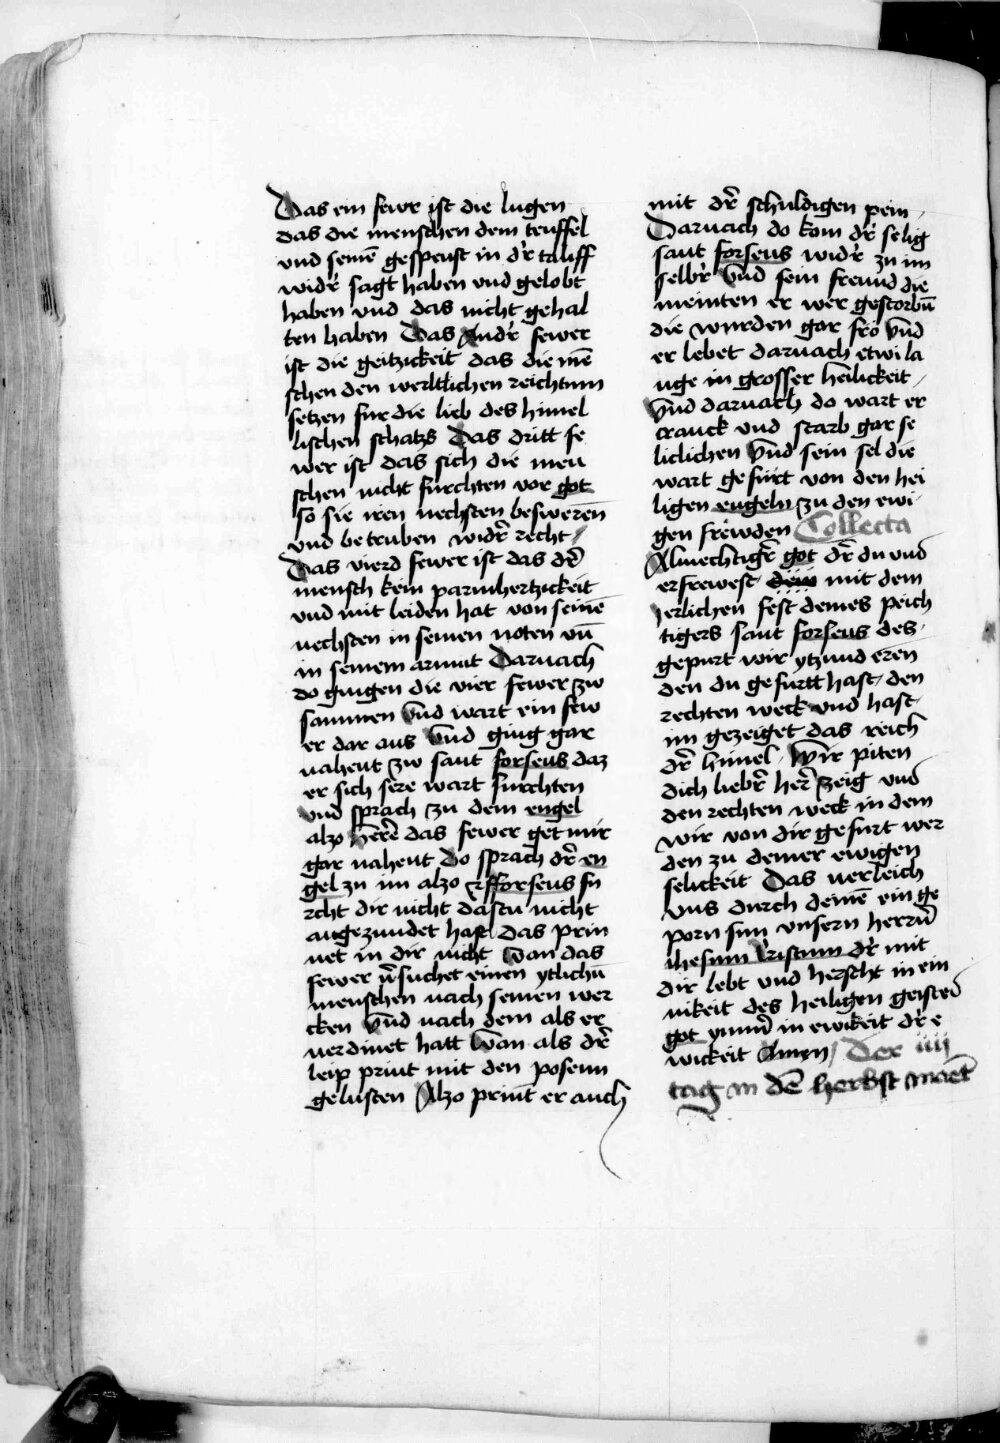 Das ein fewr ist die lugen
das die menschen dem teuffel
vnd seinē gespenst in dʼr tauff
widʼr sagt haben vnd gelobt
haben vnd das nicht gehal
ten haben Das Andʼr fewer
ist die geitzickeit das die mē
schen den werltlichen reichtum
setzen fur die lieb des himel
lischen schatzs Das dritt fe
wer ist das sich die men
schen nicht furchten vor got
so sie iren nechsten besweren
vnd betruben widʼr recht /
Das vierd fewer ist das dʼr
mensch kein parmhertzickeit
vnd mit leiden hat von seinē
nechsten in seinen noten vn̄
in seinem armut Darnach
do gingen die vier fewer zw
sammen vnd wart ein few
er dar aus vnd ging gar
nahent zw sant forseus daz
er sich sere wart furchten
vnd sprach zu dem engel
alzo herre das fewer get mir
gar nahent Do sprach dʼr en
gel zu im alzo fforseus fu
rcht dir nicht dastu nicht
angezundet hast das prin
net in dir nicht Wan das
fewer vʼsuchet einen ytlichn
menschen nach seinen wer
cken vnd nach dem als er
verdinet hatt Wan als dʼr
leip print mit den posenn
gelusten Alzo prinnt er auch
mit dʼr schuldigen pein /
Darnach do kom dʼr selig
sant forseus widʼr zu im
selbʼr vnd sein freund die
meinten er wer gestorbn̄
die wurden gar fro vnd
er lebet darnach etwi la
nge in grosser heilickeit /
vnd darnach do wart er
cranck vnd starb gar se
liclichen vnd sein sel die
wart gefurt von den hei
ligen engeln zu den ewi
gen frewden Collecta
Almechtigʼr got dʼr du vns
erfrewest dein mit dem
herlichen fest deines peich
tigers sant forseus des
gepurt wir ytzund eren
den du gefurtt hast den
rechten weck vnd hast
im gezeiget das reich
dʼr himel Wir piten
dich liebʼr herʼ zeig vns
den rechten weck in dem
wir von dir gefurt wer
den zu deiner ewigen
selickeit Das verleich
vns durch deinē ein ge
porn sun vnsern herrn̄
ihesum cristum dʼr mit
dir lebt vnd herscht in ein
nikeit des heiligen geistes
got ymmʼ in ewikeit dʼr e
wickeit Amen / Der iiij
tag in dē herbst monet